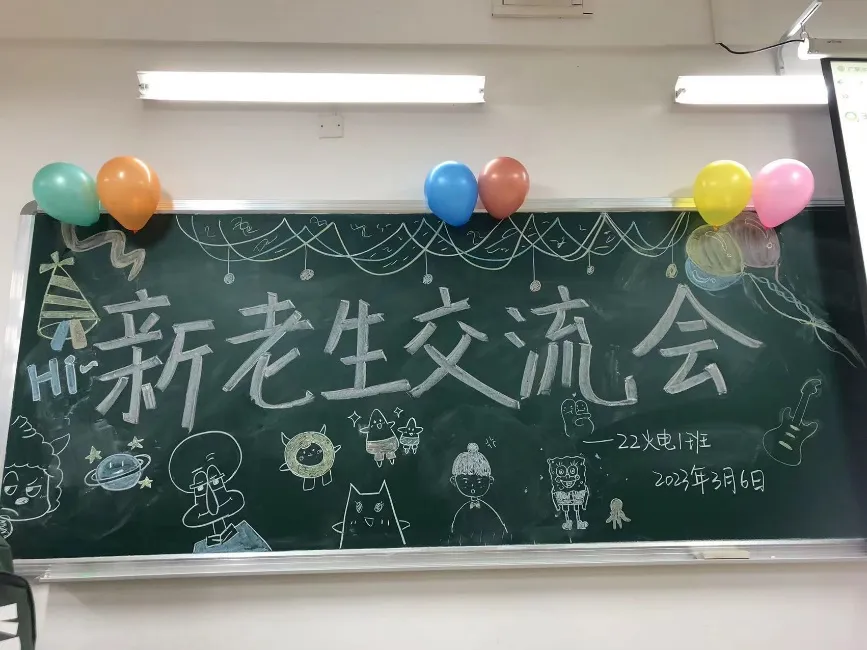 新老生交流会
Hi~
—22火电1班
2023年3月6日